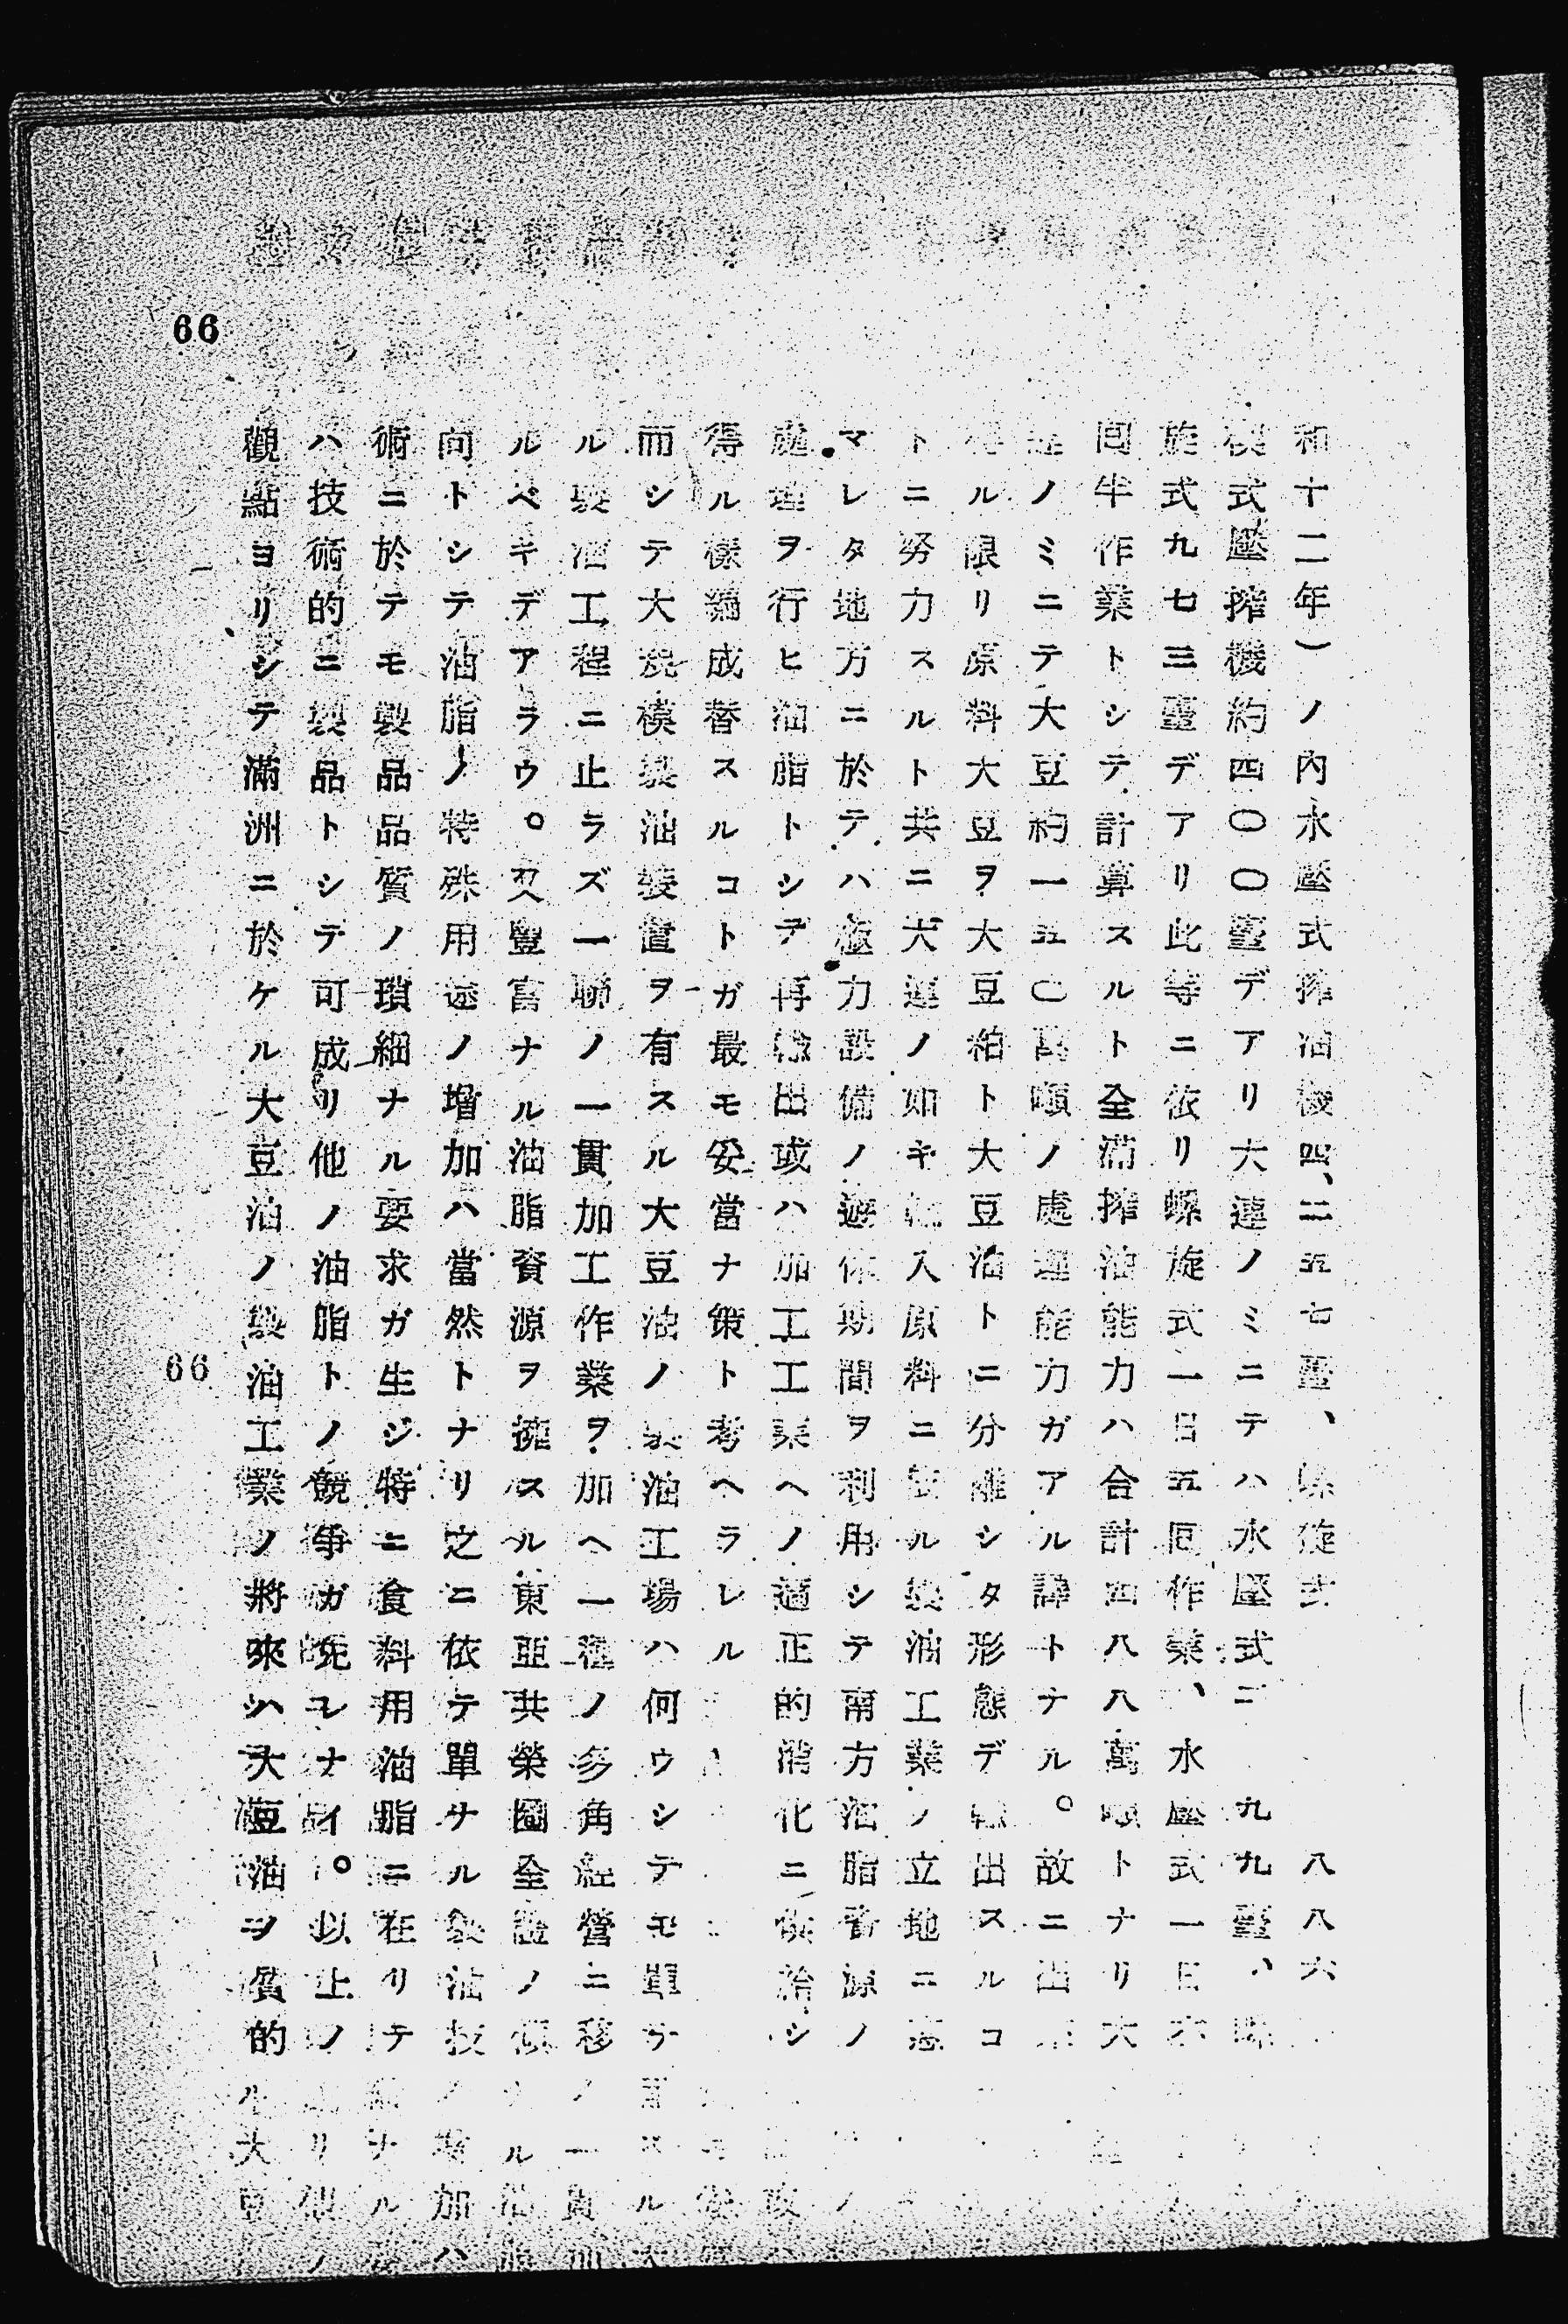 和十二年)ノ內水壓式搾油機四、二五七臺、螺旋式八八六
模式壓搾機約四〇〇臺デアリ大連ノミニテハ水壓式二九九九臺、螺
旋式九七三臺デアリ此等ニ依リ螺旋式一日五囘作業、水壓式一日六
囘半作業トシテ計算スルト全滿搾油能力ハ合計四八八萬噸トナリ大
連ノミニテ大豆約一五〇萬噸ノ處理能力ガアル譯トナル。故ニ出來
得ル限リ原料大豆ヲ大豆粕ト大豆油トニ分離シタ形態デ輸出スルコ
トニ努力スルト共ニ大連ノ如キ輸入原料ニ依ル製油工業ノ立地ニ惠
マレタ地方ニ於テハ極力設備ノ遊休期間ヲ利用シテ南方油脂資源ノ
處理ヲ行ヒ油脂トシテ再輸出或ハ加工工業ヘノ適正的消化ニ供給シ
得ル樣編成替スルコトガ最モ妥當ナ策ト考ヘラレル
而シテ大規模製油裝置ヲ有スル大豆油ノ製油工場ハ何ウシテモ單ナ
ル製油工程ニ止ラズ一聯ノ一貫加工作業ヲ加ヘ一種ノ多角經營ニ移
ルベキデアラウ。又豐富ナル油脂資源ヲ擁スル東亞共榮圈全體ノ傾
向トシテ油脂ノ特殊用途ノ增加ハ當然トナリ之ニ依テ單ナル製油技
術ニ於テモ製品品質ノ瑣細ナル要求ガ生ジ特ニ食料用油脂ニ在リテ
ハ技術的ニ製品トシテ可成リ他ノ油脂トノ競爭ガ免レナイ。以上ノ
觀點ヨリシテ滿洲ニ於ケル大豆油ノ製油工業ノ將來ハ大豆油ヲ質的
66
66